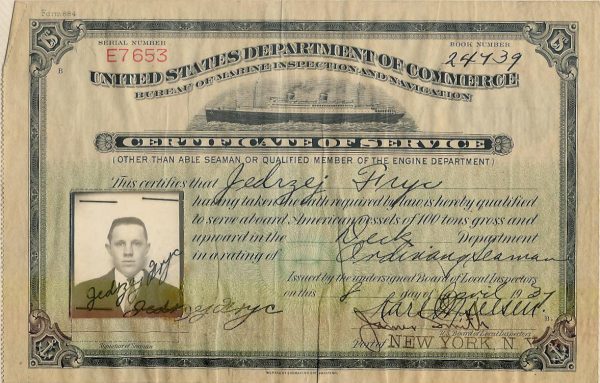 Form 884
SERIAL NUMBER
E7653
BOOK NUMBER
24739
B
UNITED STATES DEPARTMENT OF COMMERCE
BUREAU OF MARINE INSPECTION AND NAVIGATION
CERTIFICATE OF SERVICE
(OTHER THAN ABLE SEAMAN OR QUALIFIED MEMBER OF THE ENGINE DEPARTMENT)
This certifies that Jedrzej Fryc
having taken the oath required by law is hereby qualified
to serve aboard American vessels of 100 tons gross and
upward in the Deck Department
in a rating of Ordinary Seaman
Issued by the undersigned Board of Local Inspectors
on this 8 day of April 1937
Jedrzej Fryc
Jedrzej Fryc
Karl
James Smith
Board of Local Inspectors
Signature of Seaman
Port of NEW YORK, N.Y.